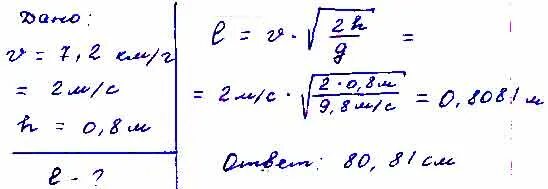 Дано:
v = 7,2 км/г
= 2м/с
h = 0,8м
l - ?
l = v · √(2h/g) =
= 2м/с · √(2·0,8м/9,8м/с) = 0,8081м
Ответ: 80,81см